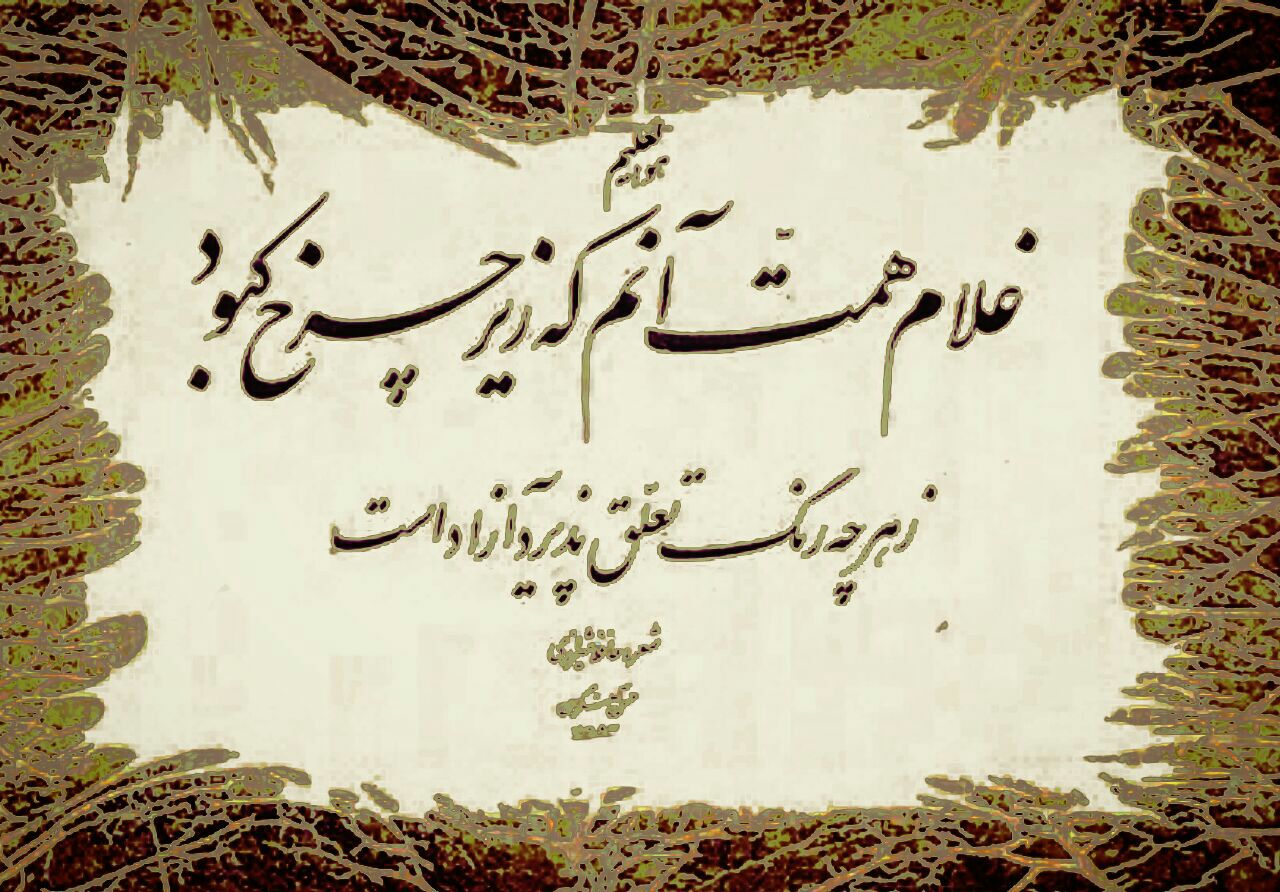 هوالعلیم
غلام همت آنم که زیر چرخ کبود
ز هر چه رنگ تعلق پذیرد آزاد است
شعر: حافظ شیرازی